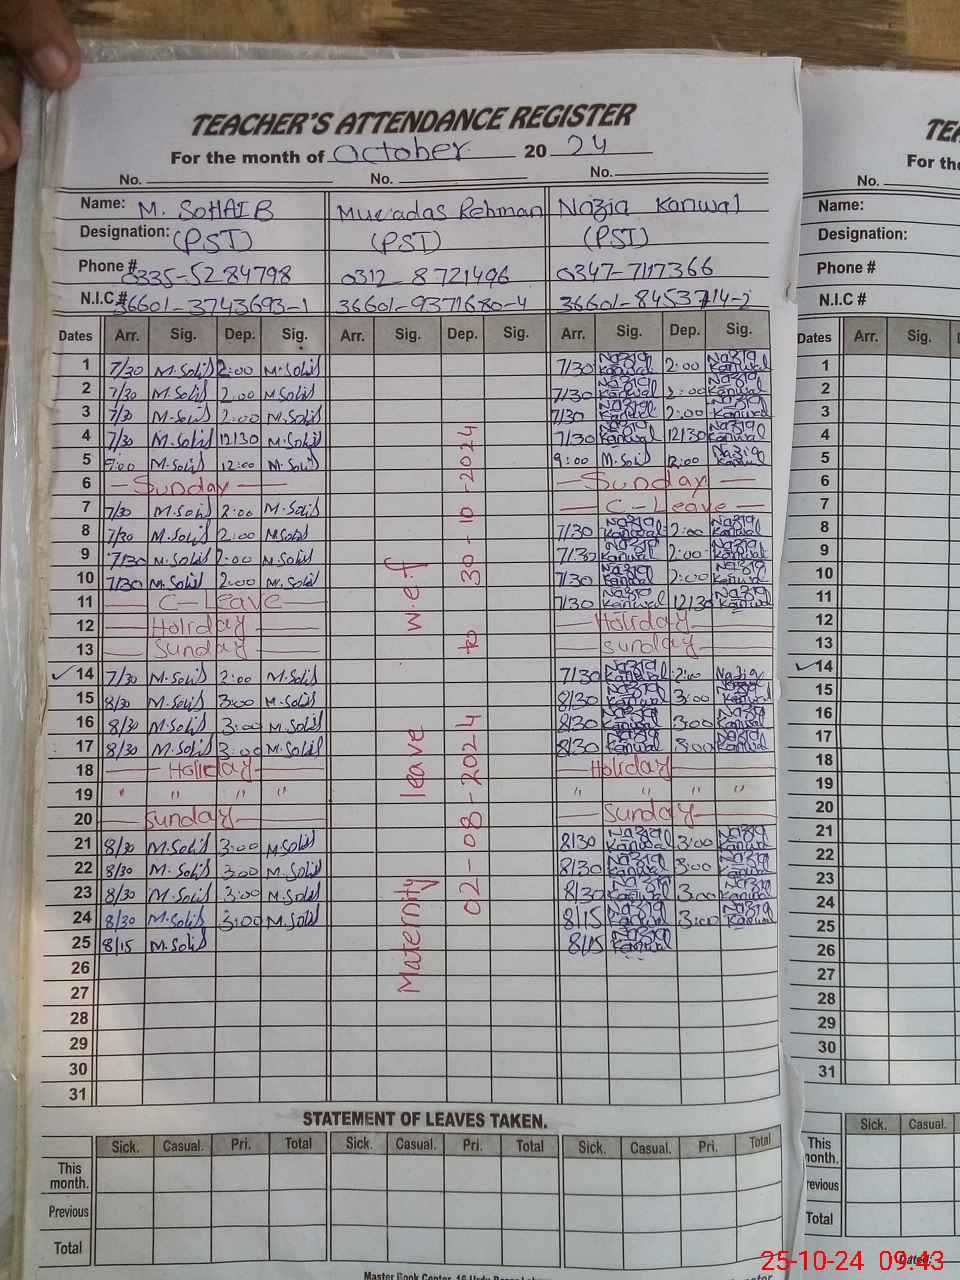 TEACHER'S ATTENDANCE REGISTER
For the month of October 20 24
No. No. No.
Name: M. SOHAIB Muqadas Rehman Nazia Kanwal
Designation: (PST) (PST) (PST)
Phone # 0335-5284798 0312-8721496 0347-7117366
N.I.C # 36601-3743693-1 36601-9371680-4
Dates Arr. Sig. Dep. Sig. Arr. Sig. Dep. Sig. Arr. Sig. Dep. Sig.
1 7/30 M.Sohib 2:00 M.Sohib 7/30 Nazia Kanwal 2:00 Nazia Kanwal
2 7/30 M.Sohib 2:00 M.Sohib 7/30 Nazia Kanwal 2:00 Nazia Kanwal
3 7/30 M.Sohib 2:00 M.Sohib 7/30 Nazia Kanwal 2:00 Nazia Kanwal
4 7/30 M.Sohib 12/30 M.Sohib 7/30 Nazia Kanwal 12/30 Nazia Kanwal
5 9:00 M.Sohib 12:00 M.Sohib 9:00 M.Sohib 12:00 Nazia Kanwal
6 Sunday Sunday
7 7/30 M.Sohib 2:00 M.Sohib C-Leave
8 7/30 M.Sohib 2:00 M.Sohib 7/30 Nazia Kanwal 2:00 Nazia Kanwal
9 7/30 M.Sohib 2:00 M.Sohib 7/30 Nazia Kanwal 2:00 Nazia Kanwal
10 7/30 M.Sohib 2:00 M.Sohib 7/30 Nazia Kanwal 2:00 Nazia Kanwal
11 C-Leave 7/30 Nazia Kanwal 12/30 Nazia Kanwal
12 Holiday Holiday
13 Sunday Sunday
14 7/30 M.Sohib 2:00 M.Sohib 7/30 Nazia Kanwal 2:00 Nazia
15 8/30 M.Sohib 3:00 M.Sohib 8/30 Nazia Kanwal 3:00 Nazia Kanwal
16 8/30 M.Sohib 3:00 M.Sohib 8/30 Nazia Kanwal 3:00 Nazia Kanwal
17 8/30 M.Sohib 3:00 M.Sohib 8/30 Nazia Kanwal 3:00 Nazia Kanwal
18 Holiday Holiday
19 " " " " " " " "
20 Sunday Sunday
21 8/30 M.Sohib 3:00 M.Sohib 8/30 Nazia Kanwal 3:00 Nazia Kanwal
22 8/30 M.Sohib 3:00 M.Sohib 8/30 Nazia Kanwal 3:00 Nazia Kanwal
23 8/30 M.Sohib 3:00 M.Sohib 8/30 Nazia Kanwal 3:00 Nazia Kanwal
24 8/30 M.Sohib 3:00 M.Sohib 8/15 Nazia Kanwal 3:00 Nazia Kanwal
25 8/15 M.Sohib 8/15 Nazia Kanwal
26
27
28
29
30
31
Maternity leave w.e.f
02-08-2024 to 30-10-2024
STATEMENT OF LEAVES TAKEN.
Sick. Casual. Pri. Total Sick. Casual. Pri. Total Sick. Casual. Pri. Total
This month.
Previous
Total
Master Book Center
For the
No.
Name:
Designation:
Phone #
N.I.C #
Dates Arr. Sig.
1
2
3
4
5
6
7
8
9
10
11
12
13
14
15
16
17
18
19
20
21
22
23
24
25
26
27
28
29
30
31
Sick. Casual.
This
Total
Dated:
25-10-24 09:43